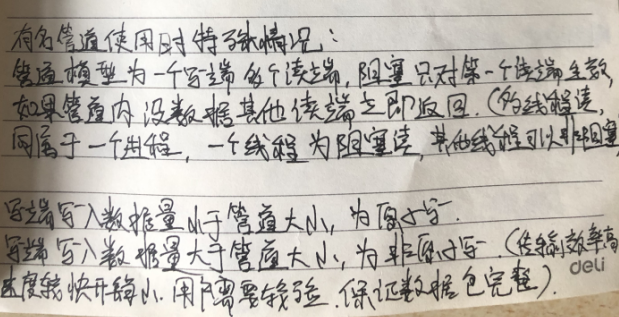 有名管道使用时特殊情况：
管道模型为一个写端多个读端，阻塞只对第一个读端生效，
如果管道内没数据其他读端立即返回.（多线程读，
同属于一个进程，一个线程为阻塞读，其他线程可以非阻塞
写端写入数据量小于管道大小，为原子写.
写端写入数据量大于管道大小，为非原子写.（传输效率高
速度较快开销小.用户需要较强.保证数据包完整）.
deli